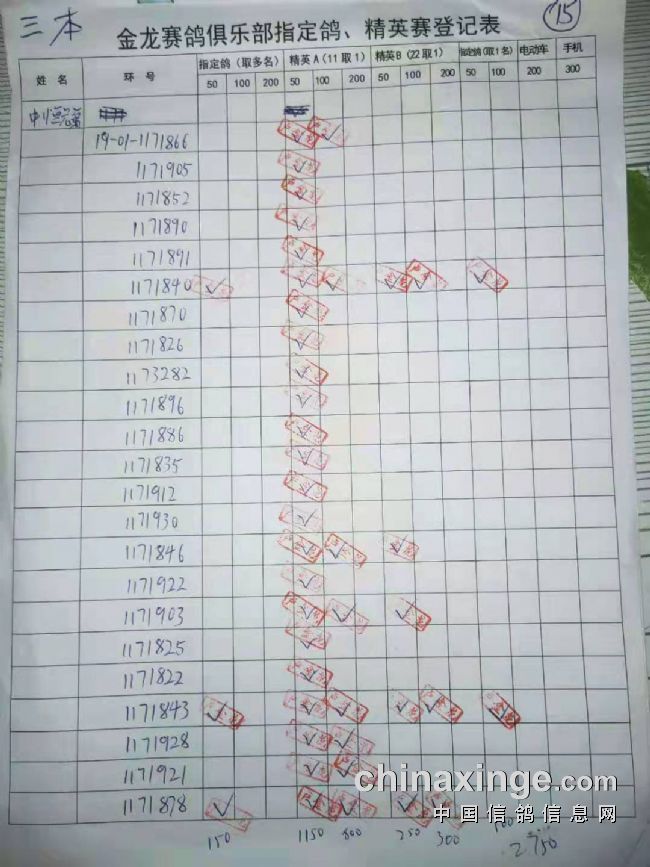 三本
15
金龙赛鸽俱乐部指定鸽、精英赛登记表
姓名 环号 指定鸽（取多名） 精英A（11取1） 精英B（22取1） 指定鸽（取1名） 电动车 手机
50 100 200 50 100 200 50 100 200 50 100 200 300
19-01-1171866
1171905
1171852
1171890
1171891
1171840
1171870
1171826
1173282
1171896
1171886
1171835
1171912
1171930
1171846
1171922
1171903
1171825
1171822
1171843
1171928
1171921
1171878
150 1150 800 250 300 100
2750
chinaxinge.com
中国信鸽信息网